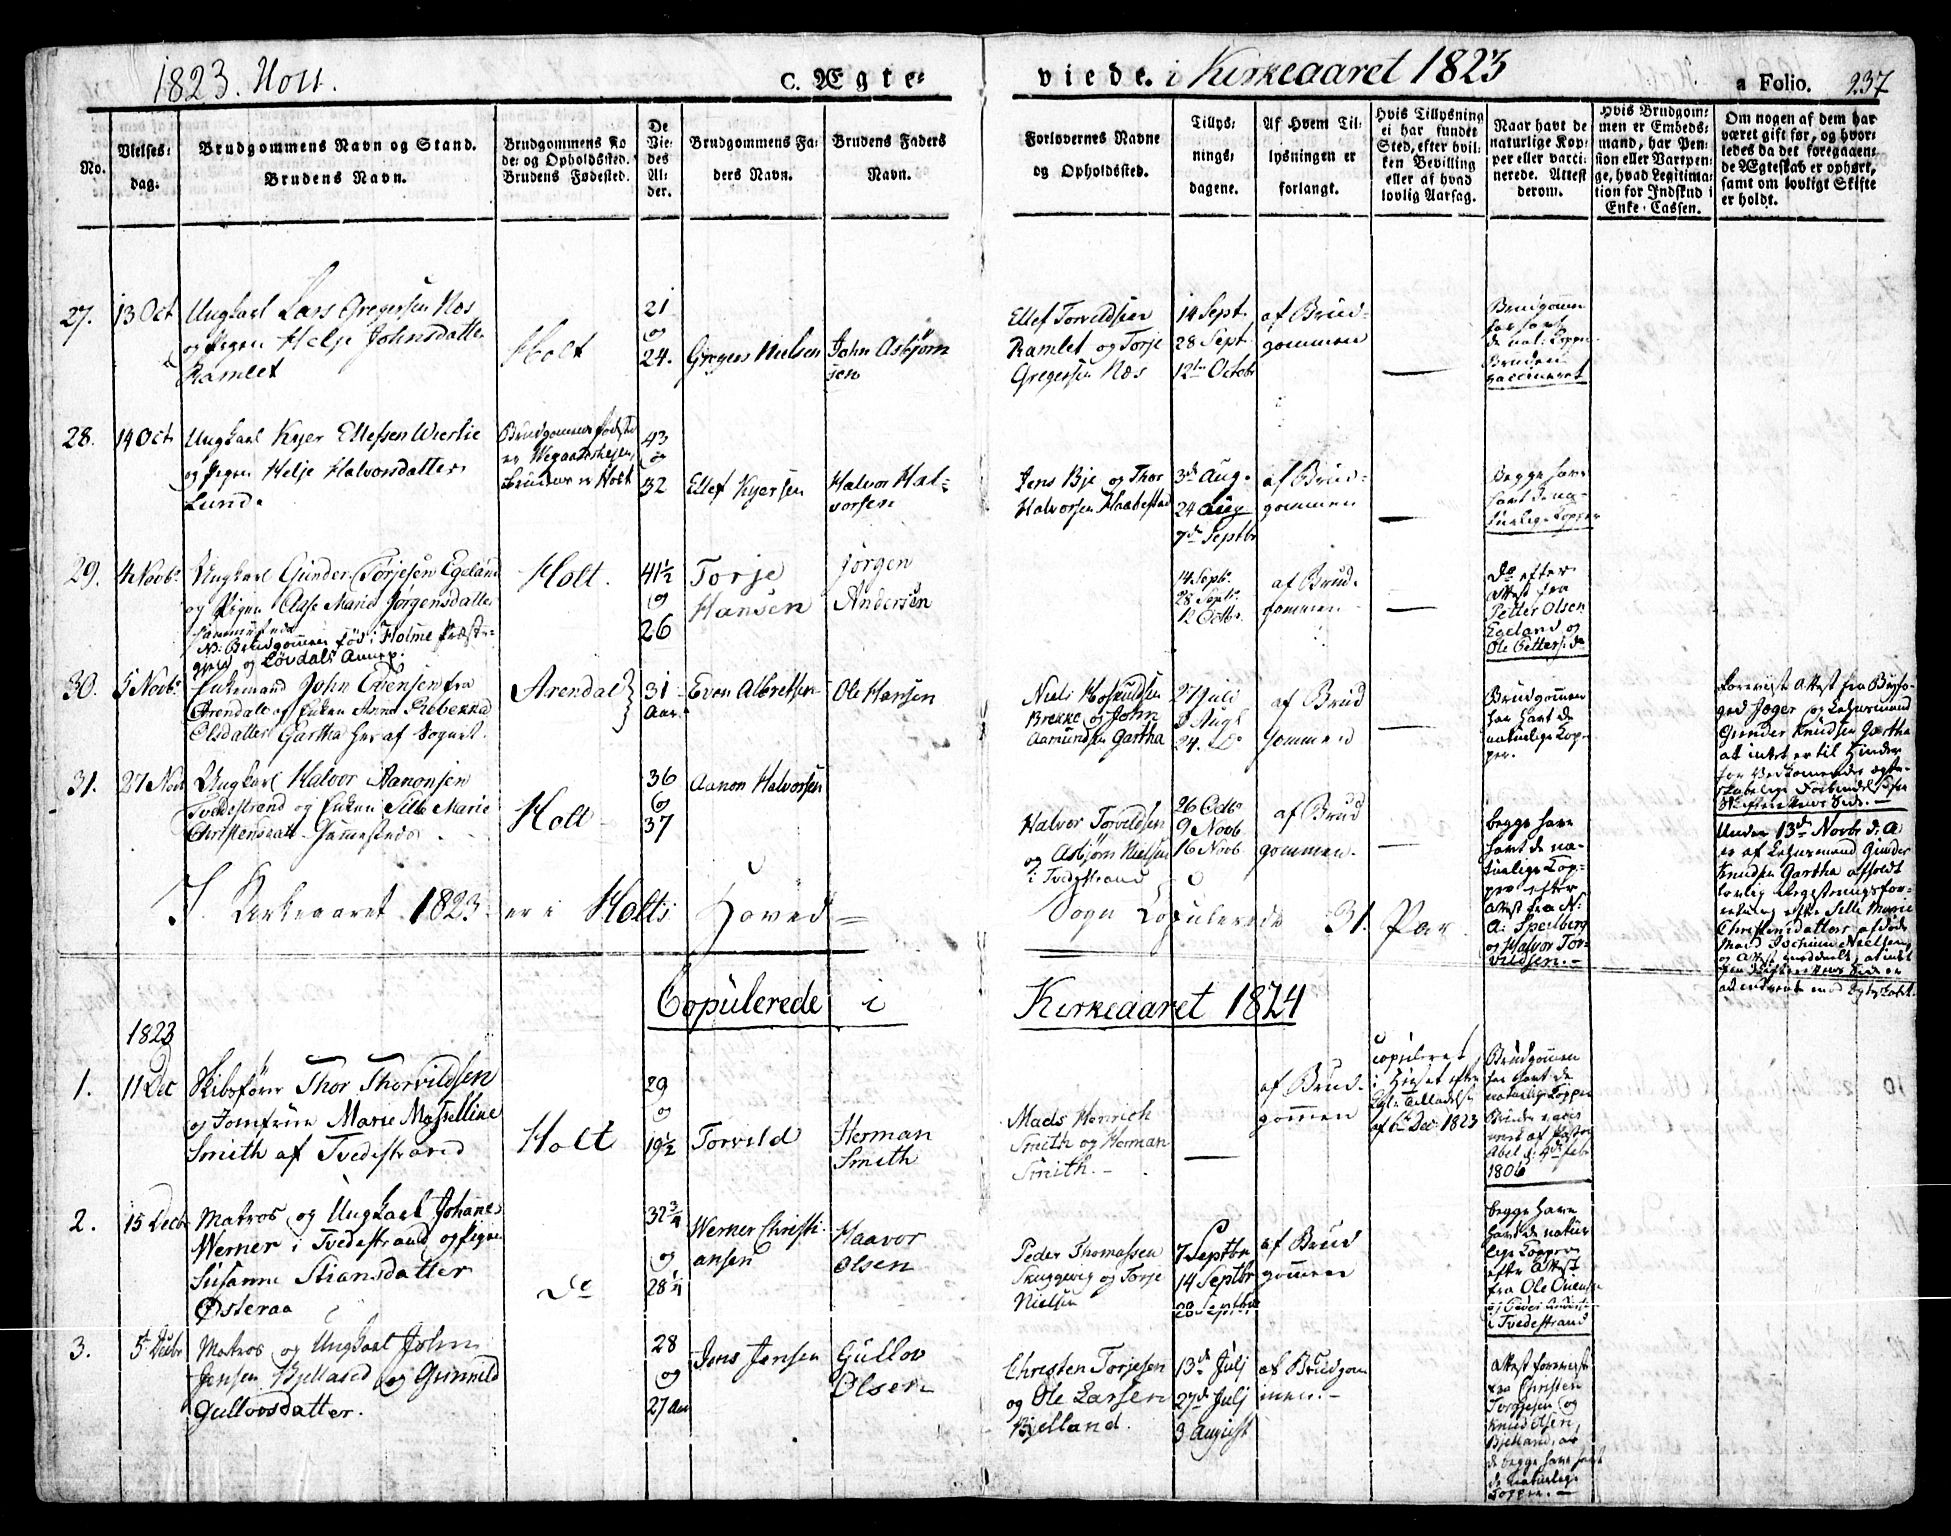 1823. Holt.
C. Ægte-
viede. i Kirkeaaret 1823
a Folio. 237
No.
Vielses-
dag.
Brudgommens Navn og Stand.
Brudens Navn.
Brudgommens Fø
de- og Opholdssted.
Brudens Fødested.
De
Vie-
des
Al-
der.
Brudgommens Fa-
ders Navn.
Brudens Faders
Navn.
Forlovernes Navne
og Opholdssted.
Tillys-
nings-
dagene.
Af Hvem Til-
lysningen er
forlangt.
Hvis Tillysning
ei har fundet
Sted, efter hvil-
ken Bevilling
eller af hvad
lovlig Aarsag.
Naar havt de
naturlige Kop-
per eller vacci-
nerede. Attest
derom.
Hvis Brudgom-
men er Embeds-
mand, har Pen-
sion eller Vartpen-
ge, hvad Legitima-
tion for Indskud i
Enke-Cassen.
Om nogen af dem har
været gift før, og hvor-
ledes da det foregaaen-
de Ægteskab er ophørt,
samt om lovligt Skifte
er holdt.
27.
13 Oct
Ungkarl Lars Gregersen Næs
og Pigen Helje Johnsdatter
Ramlet
Holt
21
og
24.
Gregers Nielsen
John Asbjørn
sen
Ellef Torvildsen
Ramlet og Torje
Gregersen Næs
14 Sept.
28 Sept.
12te Octobr
af Brud-
gommen
Brudgommen
har havt
de nat: Kopper
Bruden
vaccineret
28.
14 Oct
Ungkarl Kyer Ellefsen Wierlie
og Pigen Helje Halvorsdatter
Lunde
Brudgommens fødested
er Wegaardsheien,
Brudens er Holt
43
og
32
Ellef Kyersen
Halvor Hal-
vorsen
Jens Bje og Thor
Halvorsen
3de Aug.
24 Aug
7de Septbr
af Brud-
gommen
Begge have
havt de na-
turlige Kopper
29.
4 Novbr
Ungkarl Gunder Torjesen Egeland
og Pigen Aase Marie Jørgensdatter
sammesteds
NB: Brudgommen født i Holme Præste-
gield og Løvdals Annex.
Holt.
41½
og
26
Torje
Hansen
Jørgen
Andersen
14 Septbr
28 Septbr
12 Octbr.
af Brud-
gommen
Do efter
Attest fra
Petter Olsen
Egeland og
Ole Petters: do
30.
5 Novbr
Enkemand John Evensen fra
Arendal og Enken Anna Rebekka
Olsdatter Gartha her af Sognet.
Arendal
31
Aar
Even Albretsen
Ole Hansen
Niels Knudsen
Brekke og John
Aamundsen Gartha
27 Juli
3 Augt
24. Do
af Brud
gommen
Brudgommen
har havt de
naturlige Kop-
per.
Foreviist Attest fra Byfo-
ged Jæger og Lehnsmand
Gunder Knudsen Gartha
at intet er til Hinder
for Vedkommendes ægte-
skabelige Forbindelse fra
Skifterettens Side.
31.
27 Nov
Ungkarl Halvor Aanonsen
Tvedestrand og Enken Sille Marie
Christensdatt. Sammesteds
Holt
36
og
37
Aanon Halvorsen
Halvor Torvildsen
og Asbjørn Nielsen
i Tvedestrand
26 Octbr
9 Novb
16 Novb
af Brud
gommen.
begge have
havt de na-
turlige Kop-
per efter
Attest fra N:
A: Speilberg
og Halvor Tor-
vildsen.
Under 13de Novbr d. A
er af Lehnsmand Gunder
Knudsen Gartha afholdt
lovlig Registreringsfor-
retning efter Sille Marie
Christensdatters afdøde
Mand Jochum Nielsen,
og Attest meddeelt, at intet
fra Skifterettens Side er
at indvende mod Egteskabet.
I Kirkeaaret 1823 er i Holts Hoved-
Sogn Copulerede 31. Par.
Copulerede i
Kirkeaaret 1824
1823
1.
11 Dec
Skibsfører Thor Thorvildsen
og Jomfrue Marie Masselline
Smith af Tvedestrand
Holt
29
og
19½
Torvild
Herman
Smith
Mads Henrich
Smith og Herman
Smith.
af Brud-
gommen
copuleret
i Huset efter
Kgl: Tilladelse
af 6te Dec: 1823
Brudgommen
har havt de
naturlige Kopper
Bruden vacci-
neret af Pastor
Abel d: 4de Febr
1806
2.
15 Decbr
Matros og Ungkarl Johannes
Werner i Tvedestrand og Pigen
Susanne Stiansdatter
Østeraa
Do
32¾
og
28¼
Werner Christi-
ansen
Haavor
Olsen
Peder Thomassen
Skuggevig og Torje
Nielsen
7 Septbr
14 Septbr
28 Septbr
af Brud
gommen
begge have
havt de natur
lige Kopper
efter Attest
fra Ole Oiensen
i Tvedestrand
3.
5te Decbr
Matros og Ungkarl John
Jensen Bjelland og Gunnild
Gullovsdatter.
28
og
27 Aar
Jens Jensen
Gullov
Olsen
Christen Torjesen
og Ole Larsen
Bjelland.
13de Julj
27de Julj
3 August
af Brudgom
men.
Attest foreviist
fra Christen
Torgjesen og
Knud Olsen
Bjelland, at
de begge have havt
de naturlige
Kopper.